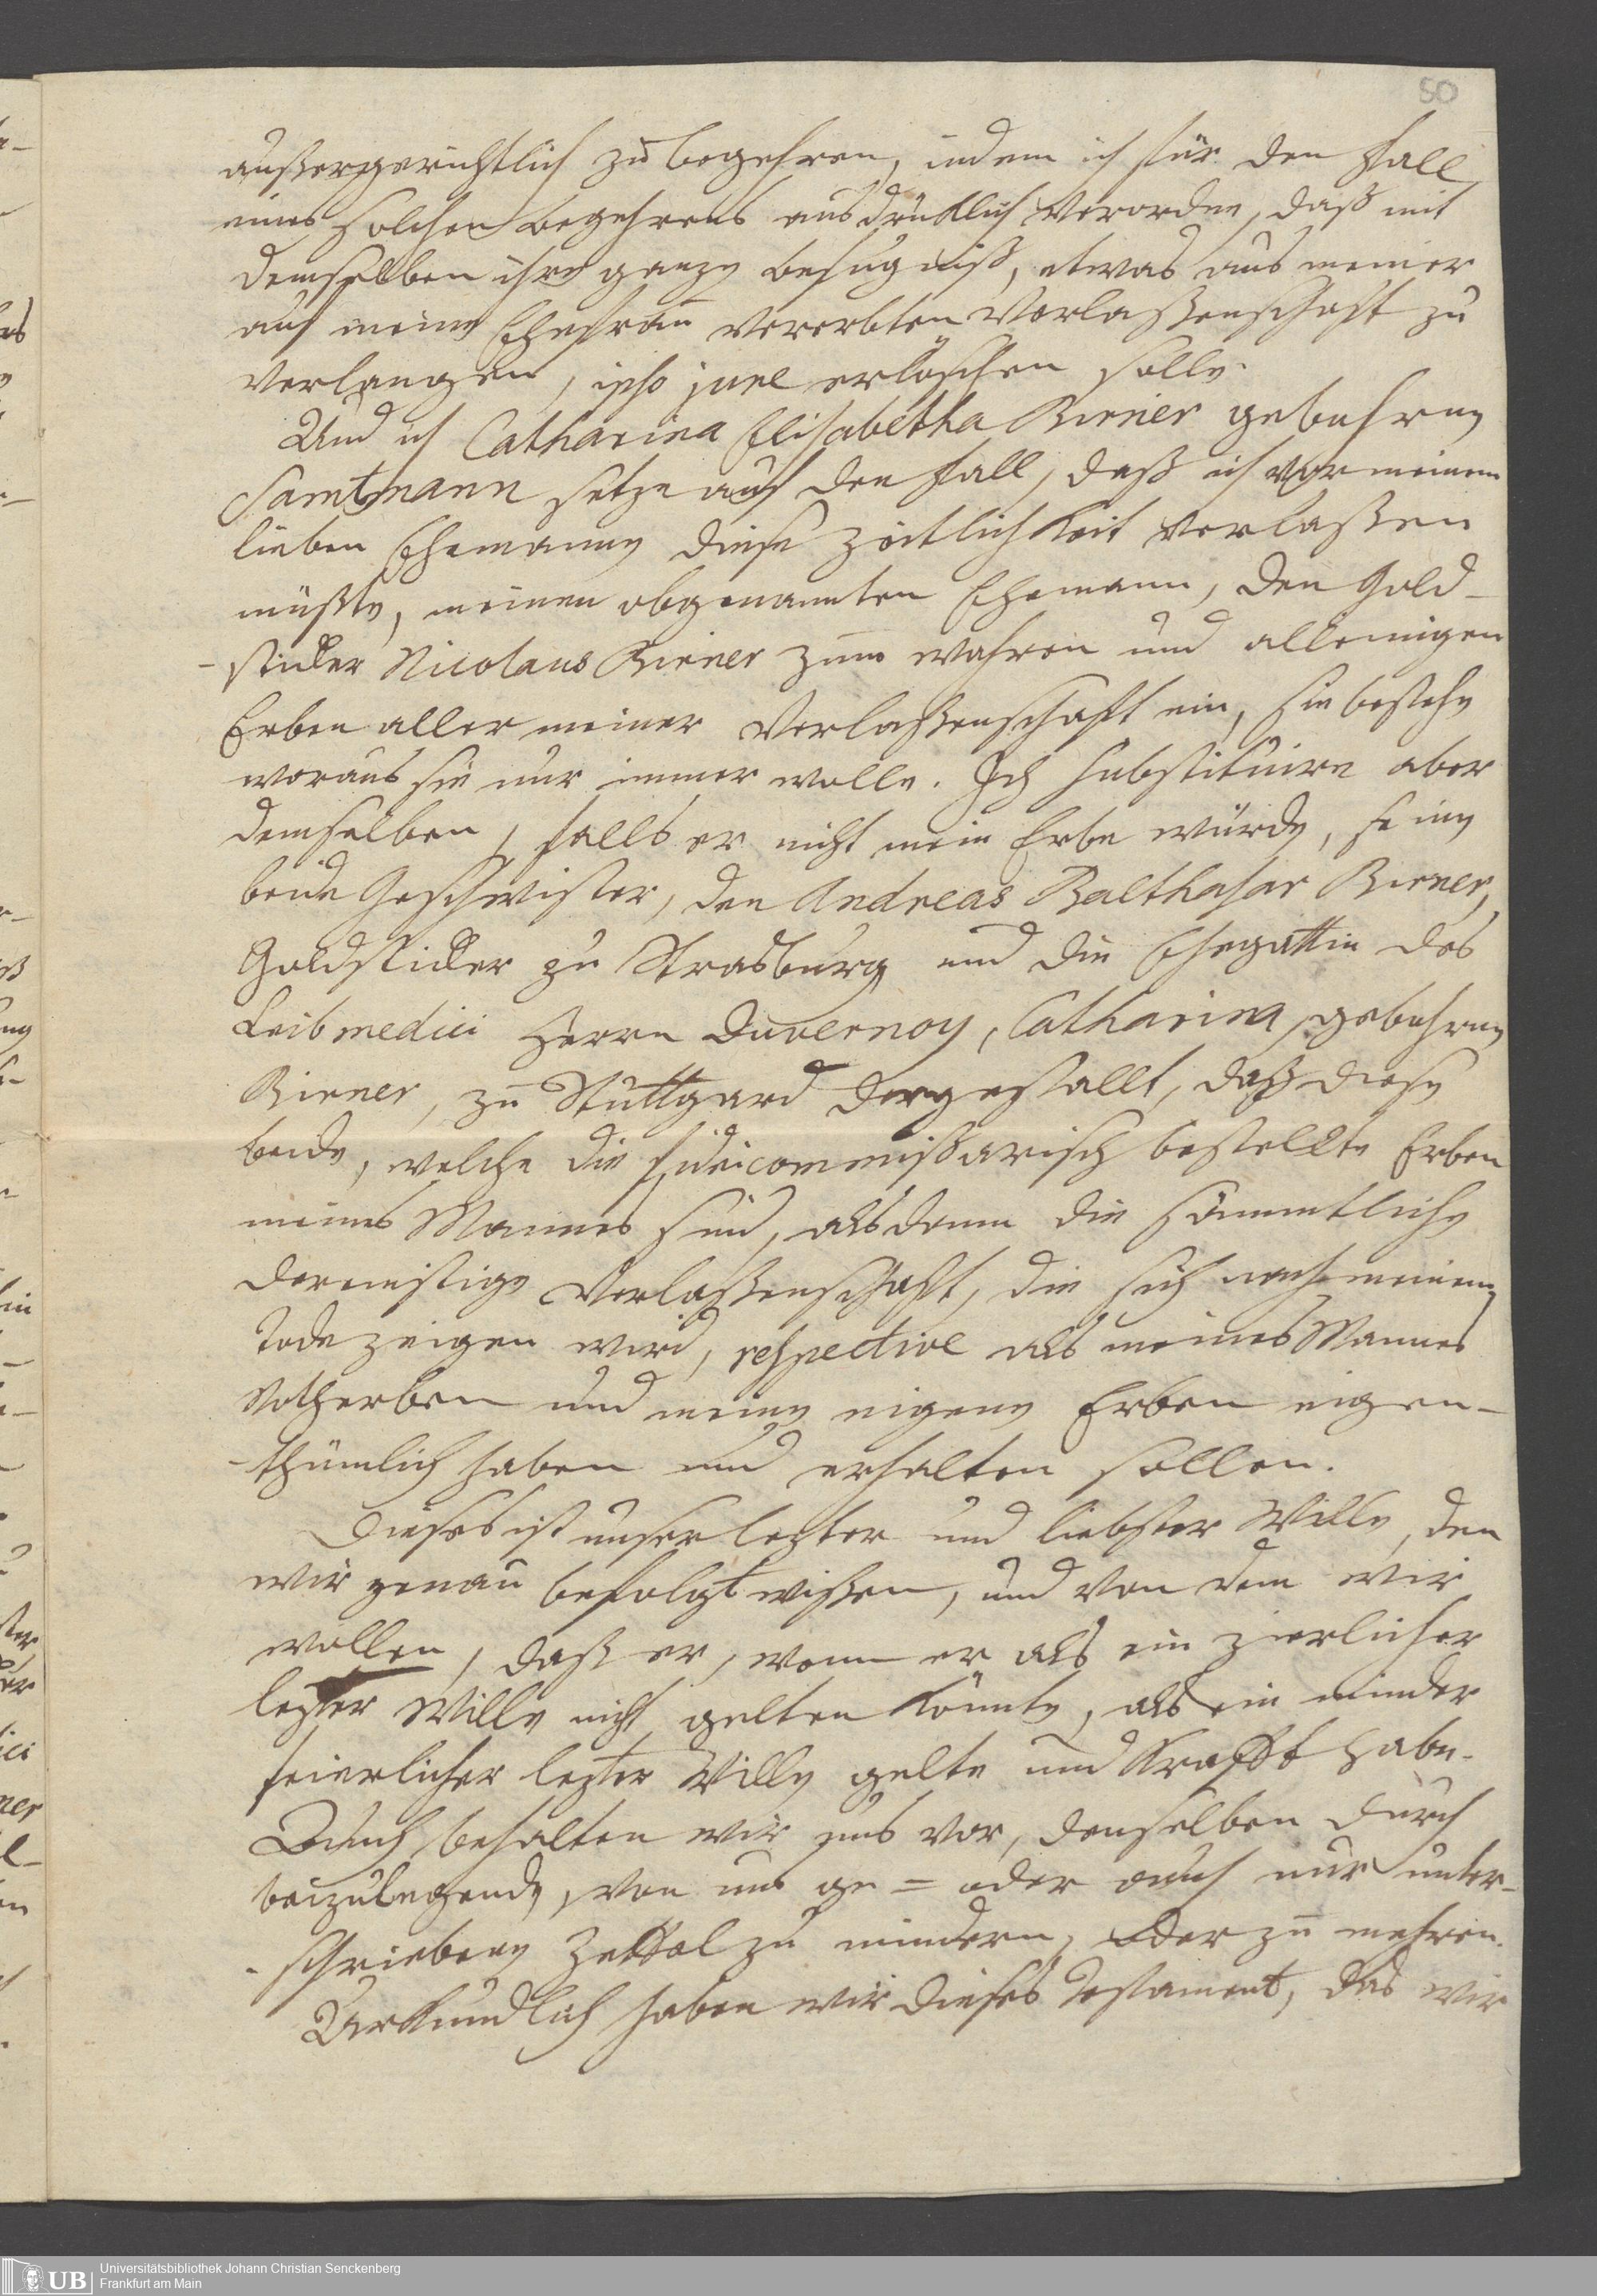 50
außergerichtlich zu begehren, indem ich für den Fall
eines solchen Begehrens ausdrüklich verordne, daß mit
demselben ihre ganze Befugniß, etwas aus meiner
auf meine Ehefrau vererbten Verlaßenschaft zu
verlangen, ipso jure erlöschen solle.
Und ich Catharina Elisabetha Birner gebohrne
Samtmann setze auf den Fall, daß ich vor meinem
lieben Ehemanne diese Zeitlichkeit verlaßen
müßte, meinen obgenannten Ehemann, den Gold-
-sticker Nicolaus Birner zum wahren und alleinigen
Erben aller meiner Verlaßenschaft ein, sie bestehe
woraus sie nur immer wolle. Ich substituire aber
demselben, falls er nicht mein Erbe würde, seine
beide Geschwister, den Andreas Balthasar Birner,
Goldsticker zu Strasburg und die Ehegattin des
Leibmedici Herrn Duvernoy, Catharina, gebohrne
Birner, zu Stuttgard dergestallt, daß diese
beide, welche die fideicommißarisch bestellte Erben
meines Mannes sind, alsdenn die sämmtliche
dereinstige Verlaßenschaft, die sich nach meinem
Tode zeigen wird, respective als meines Mannes
Notherben und meine eigene Erben eigen-
-thümlich haben und erhalten sollen.
Dieses ist unser lezter und liebster Wille, den
wir genau befolgt wißen, und von dem wir
wollen, daß er, wenn er als ein zierlicher
lezter Wille nicht gelten könnte, als ein minder
feierlicher lezter Wille gelte und Krafft habe.
Auch behalten wir uns vor, denselben durch
beizulegende, von uns ge= oder auch nur unter-
-schriebene Zettel zu mindern, oder zu mehren.
Urkundlich haben wir dieses Testament, das wir
UB
Universitätsbibliothek Johann Christian Senckenberg
Frankfurt am Main